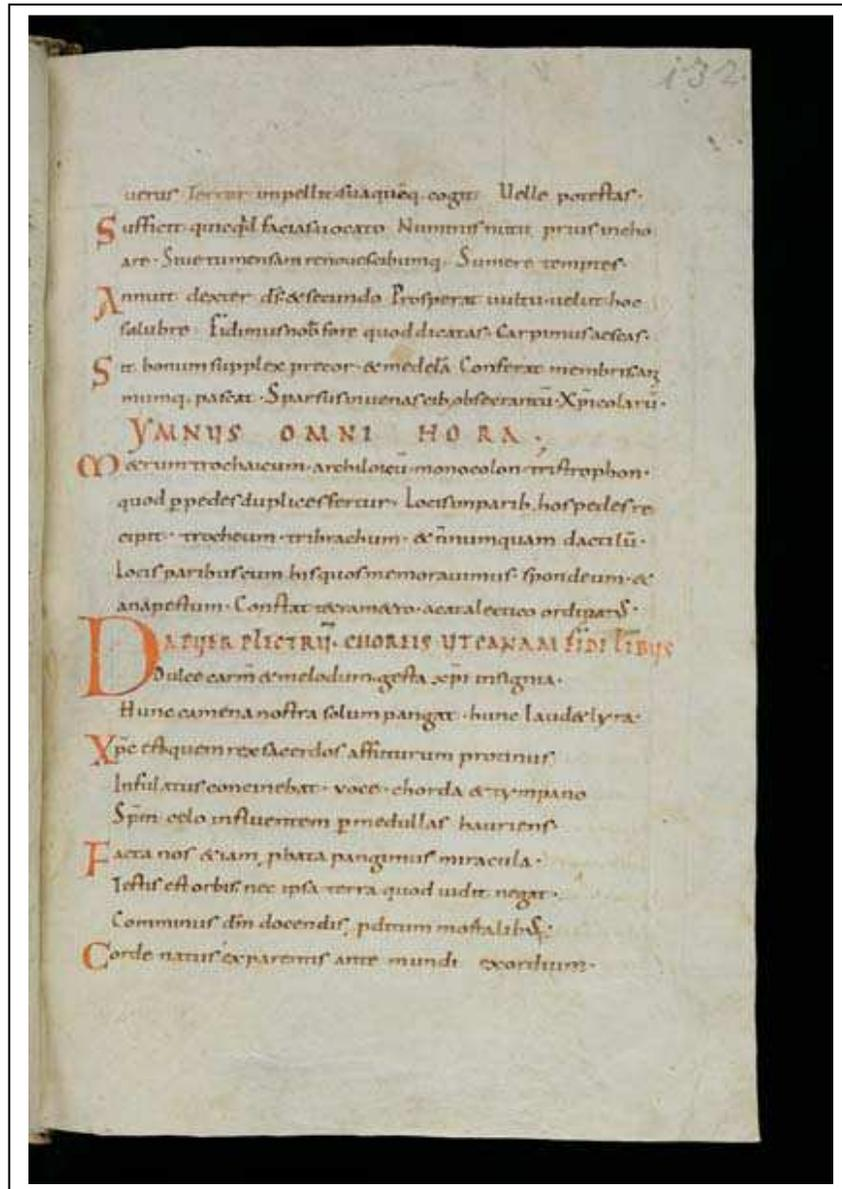 132
uerus Terror impellit suaquēq. cogit Uelle potestas·
Sufficit quicqd facias uocato Numinis nutu prius incho
are· Siue tu mensam renoues cibumq. Sumere temptes·
Annuit dexter d̄s· & secundo Prosperat uultu· uelut hoc
salubre Fidimus nob̄ fore quod dicatas· Carpimus aescas·
Sit bonum supplex precor· & medelā Conferat membris· an
mumq. pascat· Sparsus in uenas cib, obsecrantū· Xp̄icolarū·
YMNUS OMNI HORA;
M&rum trochaicum· archiloicū· monocolon· tristrophon·
quod p̱ pedes duplices fertur· Locis imparib, hos pedes re
cipit· trocheum· tribrachum· & n̄numquam dactilū·
Locis paribus cum his quos memorauimus· spondeum· &
anapestum· Constat t&ram&ro· acatalectico
DA PUER PLECTRŪ· CHOREIS UT CANAM FIDELIBUS
Dulce carm̄ & melodum· gesta xp̄i insignia·
Hunc camena nostra solum pangat· hunc laud& lyra·
Xp̄c est quem rex sacerdos affuturum protinus
Infulatus concinebat· uoce· chorda & tympano
Sp̄m celo influentem p̱ medullas hauriens·
Facta nos & iam, pbata pangimus miracula·
Testis est orbis nec ipsa terra quod uidit negat·
Comminus dm̄ docendis, pditum mortalib,
Corde natus ex parentis ante mundi exordium·